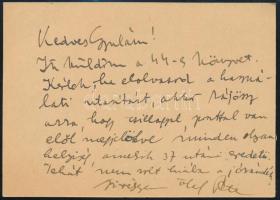 Kedves Gyulám!
Itt küldöm a 44-es könyvet.
Kérlek, ha elolvasod a haszná-
lati utasítást, akkor rájössz
arra, hogy csillaggal, ponttal van
elől megjelölve minden olyan
helyiség, amelyik 37 utáni eredetű.
Tehát nem volt hiába a jószándék
ölel